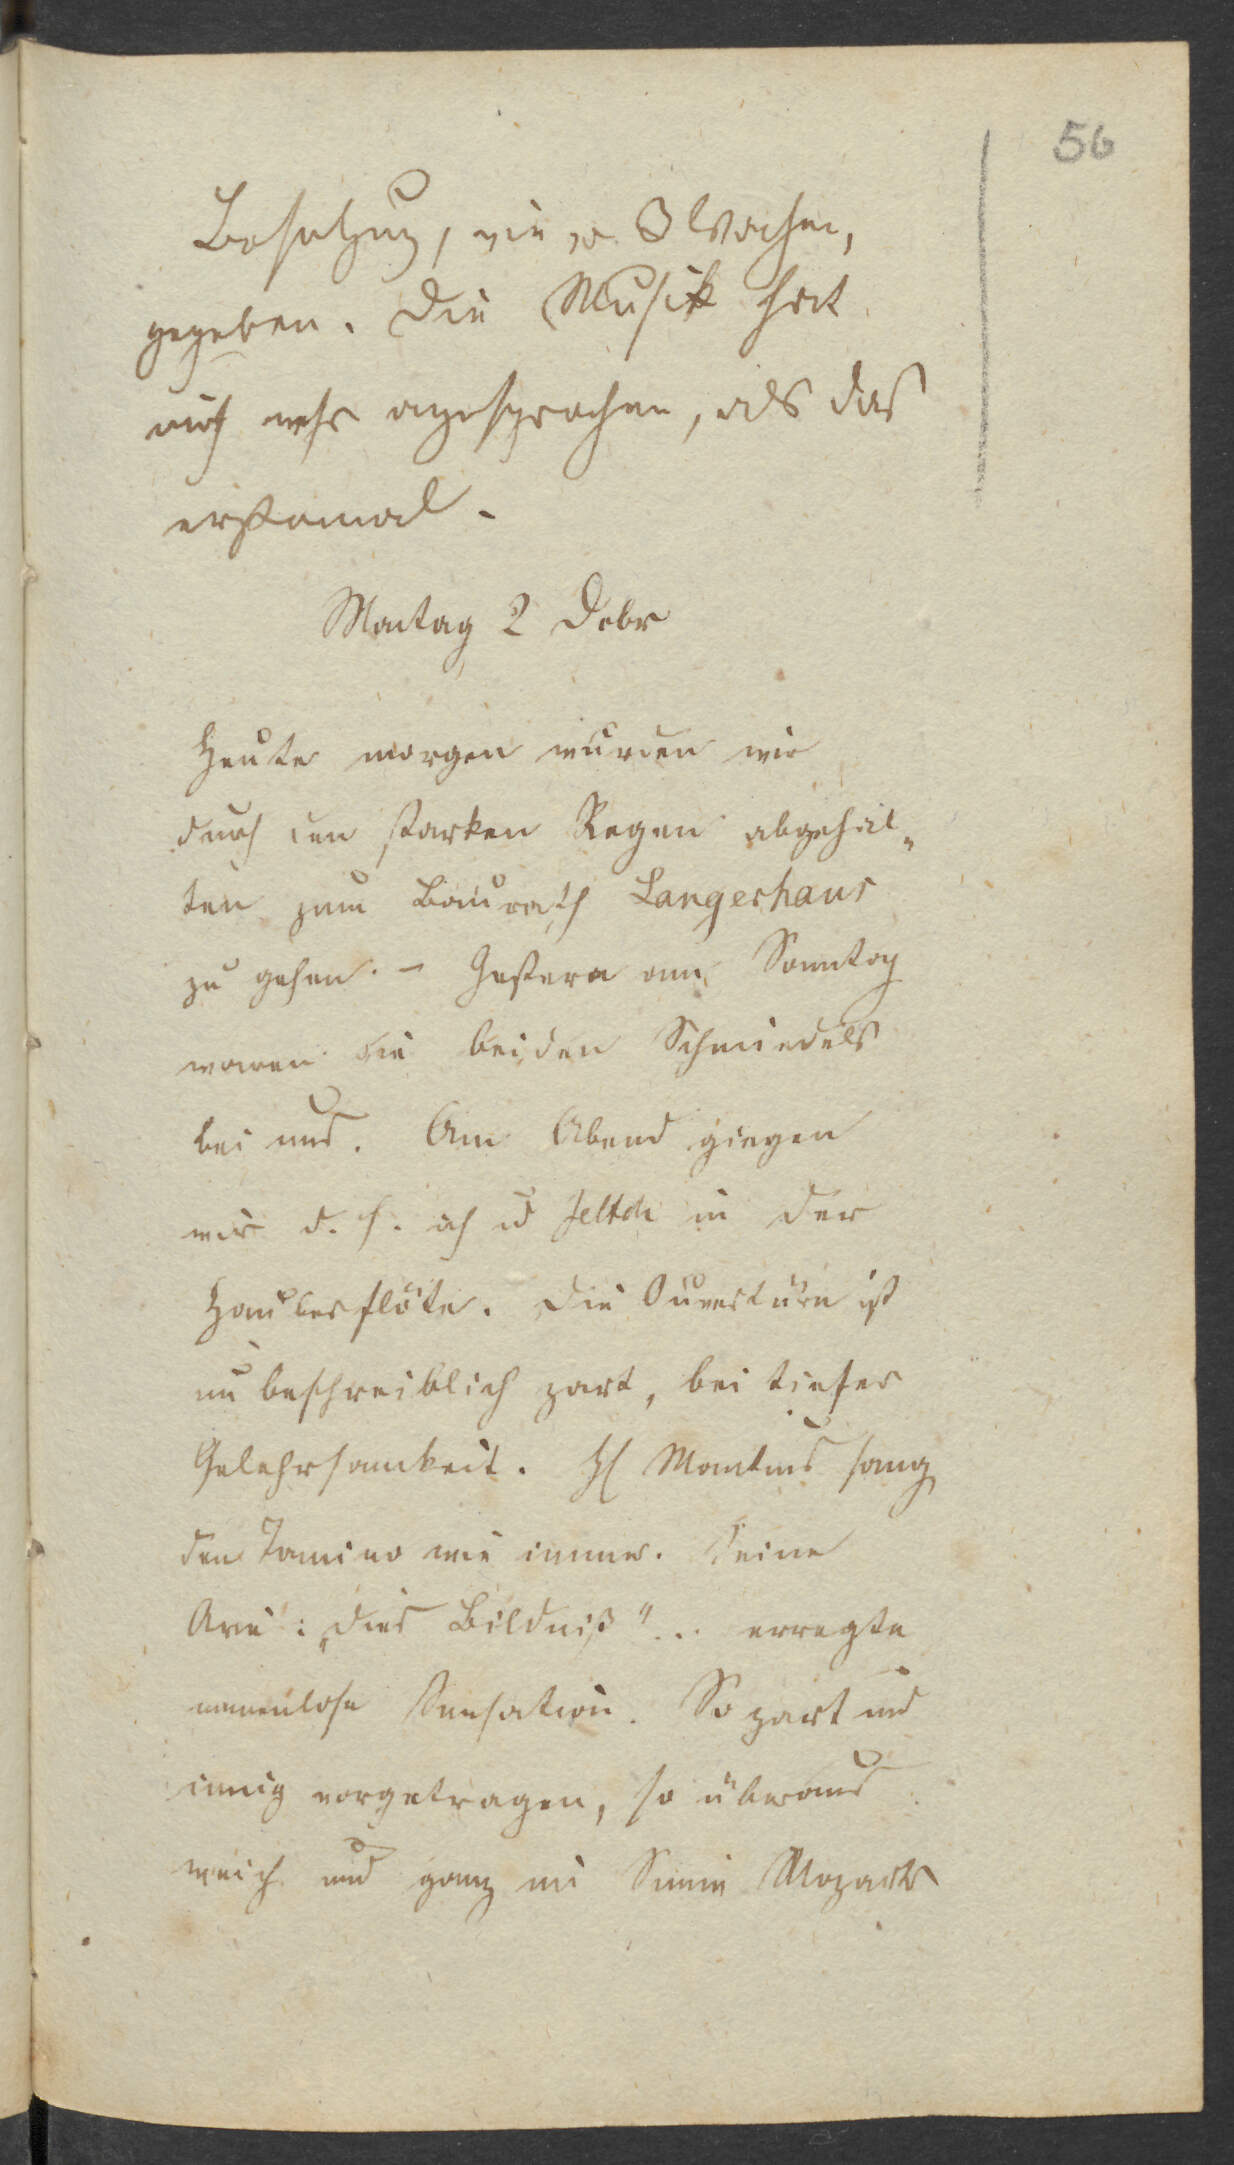 56
Besetzung, wie vor 3 Wochen,
gegeben. Die Musik hat
mich mehr angesprochen, als das
erstemal.
Montag 2 Debr
Heute morgen wurden wir
durch den starken Regen abgehal„
ten zum Baurath Langerhans
zu gehen. – Gestern am Sonntag
waren die beiden Schmiedels
bei uns. Am Abend giengen
wir d. h. ich u Jeltch in der
Zauberflöte. Die Ouvertüre ist
unbeschreiblich zart, bei tiefer
Gelehrsamkeit. H Mantius sang
den Tamino wie immer. Seine
Arie: „Dies Bildniß"... erregte
namenlose Sensation. So zart und
innig vorgetragen, so überaus
weich und ganz im Sinne Mozarts